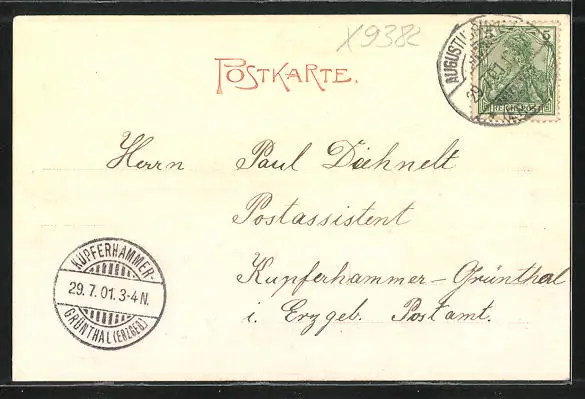 X938c
POSTKARTE.
5
REICHSPOST
29.7.01
Herrn Paul Diehnelt
Postassistent
Kupferhammer-Grünthal
i. Erzgeb. Postamt.
KUPFERHAMMER-
29.7.01.3-4N.
GRÜNTHAL (ERZGEB)